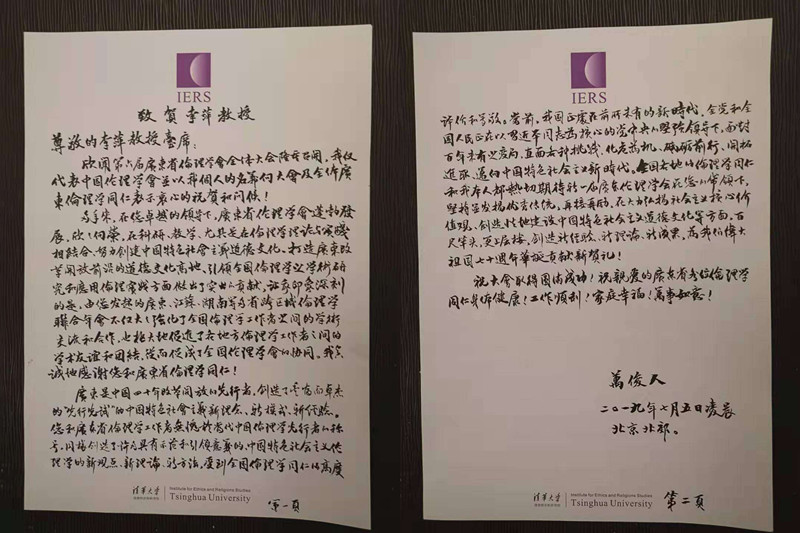 IERS
致贺李萍教授
尊敬的李萍教授臺席：
欣闻第六届廣东省倫理学會全体大会隆重召開，我仅
代表中国倫理学會並以我個人的名義向大會及全体廣
东倫理学同仁表示衷心的祝賀和问候！
多年来，在您卓越的领导下，廣东省倫理学會蓬勃發
展，欣欣向榮，在科研、教学、尤其是在倫理学理论与实践
相结合、努力创建中国特色社會主義道德文化、打造廣东改
革開放前沿的道德文化高地、引领全国倫理学之学術研
究和應用倫理实践方面做出了突出的贡献，
的是，由您发起的廣东、江蘇、湖南等多省跨区域倫理学
联合年會不仅大大强化了全国倫理学工作者之间的学術
交流和合作，也极大地促進了各地方倫理学工作者之间的
学术友谊和团结，從而促成了全国倫理学會的协同。我真
诚地感谢您和廣东省倫理学同仁！
廣东是中国四十年改革闻放的先行者，创造了
的“先行先試”的中国特色社會主義新理念、新模式、新经验。
您和廣东省倫理学工作者無愧於當代中国倫理学先行者的称
号，同樣创造了许多具有示范和引领意義的、中国特色社会主义倫
理学的新观点、新理論、新方法，受到全国倫理学同仁的高度
清華大学
Institute for Ethics and Religions Studies
Tsinghua University
第一頁
IERS
评价和尊敬。當前，我国正處在前所未有的新時代，全党和全
国人民正在以习近平同志為核心的党中央的坚强领导下，面对
百年未有之变局，直面各种挑战，化危為机，砥砺前行，開拓
進取，邁向中国特色社会主义新時代。全国各地的倫理学同仁
和我本人都热切期待新一届廣东倫理学会在您的带领下，
坚持並发揚优秀传統，再接再励，在大力弘揚社会主义核心价
值观、创造性地建设中国特色社会主义道德文化等方面，百
尺竿头，更上层楼，创造新经验、新理論、新成果，為我们偉大
祖国七十週年華誕贡献新贺礼！
祝大會取得圆满成功！祝親爱的廣东省各位倫理学
同仁身体健康！工作顺利！家庭幸福！萬事如意！
萬俊人
二〇一九年七月五日凌晨
北京北郊。
清華大学
Institute for Ethics and Religions Studies
Tsinghua University
第二頁